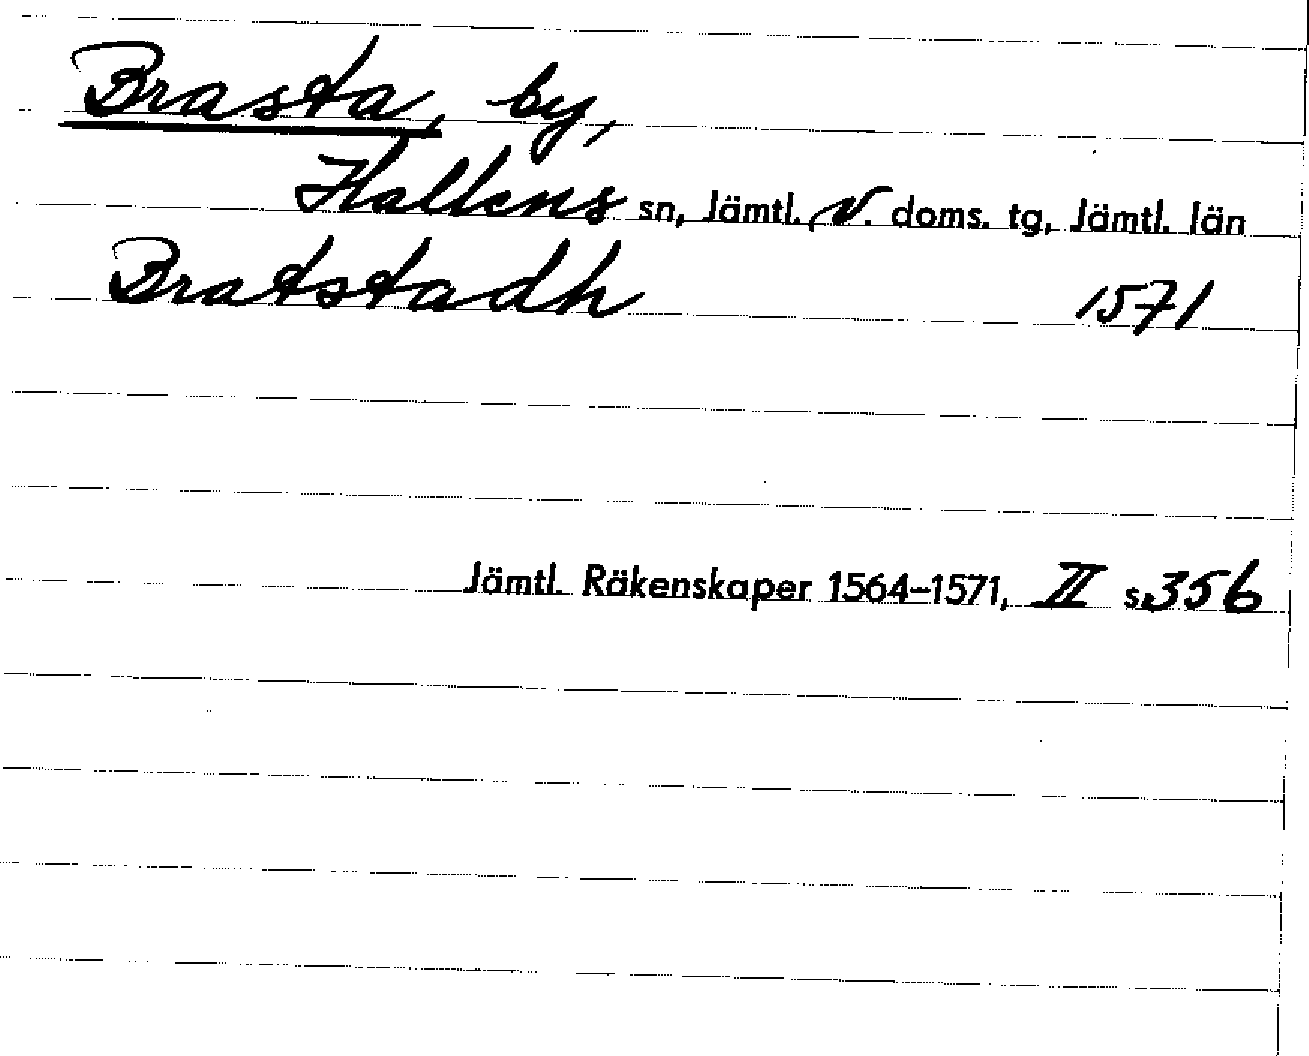 Brasta, by,
Hallens sn, Jämtl. V. doms. tg, Jämtl. län
Bratstadh 1571
Jämtl. Räkenskaper 1564–1571, II s. 356